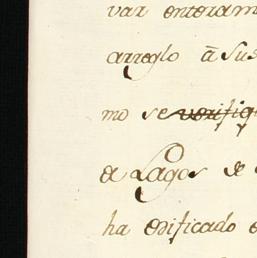 var enteram
arreglo á sus
mo se verifiq
a Lagos de
ha edificado e